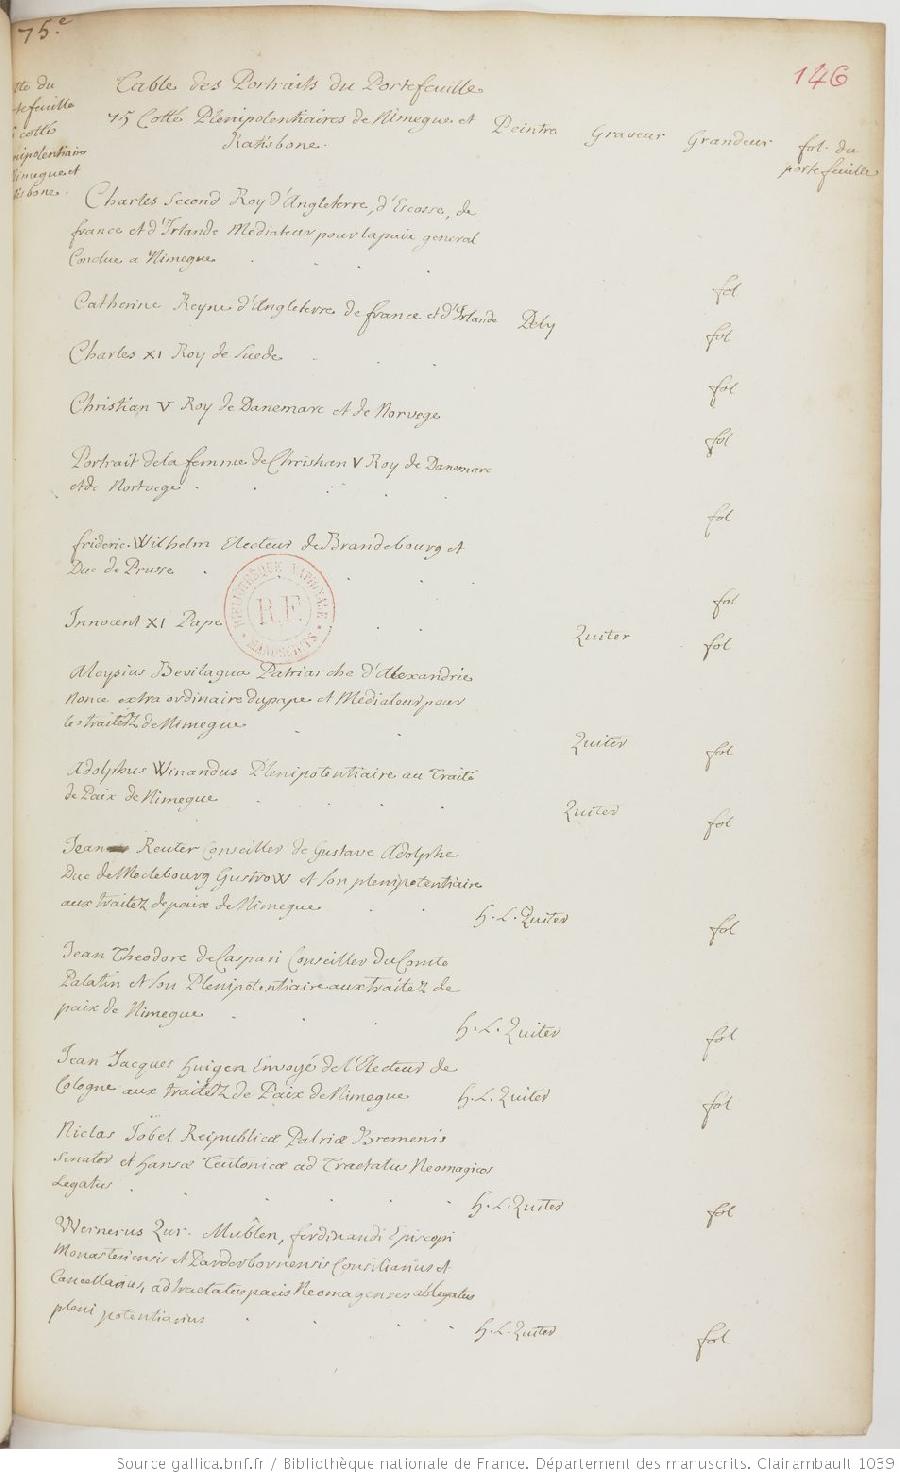 75.e
146
Table des Portraits du Portefeuille
75 Cotté Plenipotentiaires de Nimegue et
Ratisbone.
Peintre Graveur Grandeur fol. du
portefeuille
tte du
tefeuille
cotté
nipotentiaires
Nimegue et
tisbone.
Charles Second Roy d'Angleterre, d'Escosse, de
france et d'Irlande Mediateur pour la paix general
Conclue a Nimegue fol
Catherine Reyne d'Angleterre de france et d'Irlande Pely fol
Charles XI Roy de Suede fol
Christian V Roy de Danemarc et de Norvege fol
Portrait de la femme de Christian V Roy de Danemarc
et de Nortvege fol
frideric Wilhelm Electeur de Brandebourg et
Duc de Prusse fol
Innocent XI Pape Quiter fol
BIBLIOTHEQUE NATIONALE
R.F.
MANUSCRITS
Aloysius Bevilaqua Patriarche d'Alexandrie
Nonce extraordinaire du pape et Mediateur pour
les traitéz de Nimegue Quiter fol
Adolphus Winandus Plenipotentiaire au Traité
de Paix de Nimegue Quiter fol
Jean Reuter Conseiller de Gustave Adolphe
Duc de Meclebourg Gustrow et son plenipotentiaire
aux traitéz de paix de Nimegue H. L. Quiter fol
Jean Theodore de Caspari Conseiller du Comte
Palatin et son Plenipotentiaire aux traitéz de
paix de Nimegue H. L. Quiter fol
Jean Jacques Huigen Envoyé de l'Electeur de
Cologne aux traitéz de Paix de Nimegue H. L. Quiter fol
Niclas Zobel Reipublicæ Patriæ Bremensis
Senator et Hansæ Teutonicæ ad Tractatus Neomagicos
Legatus H. L. Quiter fol
Wernerus Zur. Muhlen, ferdinandi Episcopi
Monasteriensis et Parderbornensis Consiliarius et
Cancellarius, ad tractatus pacis Neomagenses ablegatus
pleni potentiarius H. L. Quiter fol
Source gallica.bnf.fr / Bibliothèque nationale de France. Département des manuscrits. Clairambault 1039